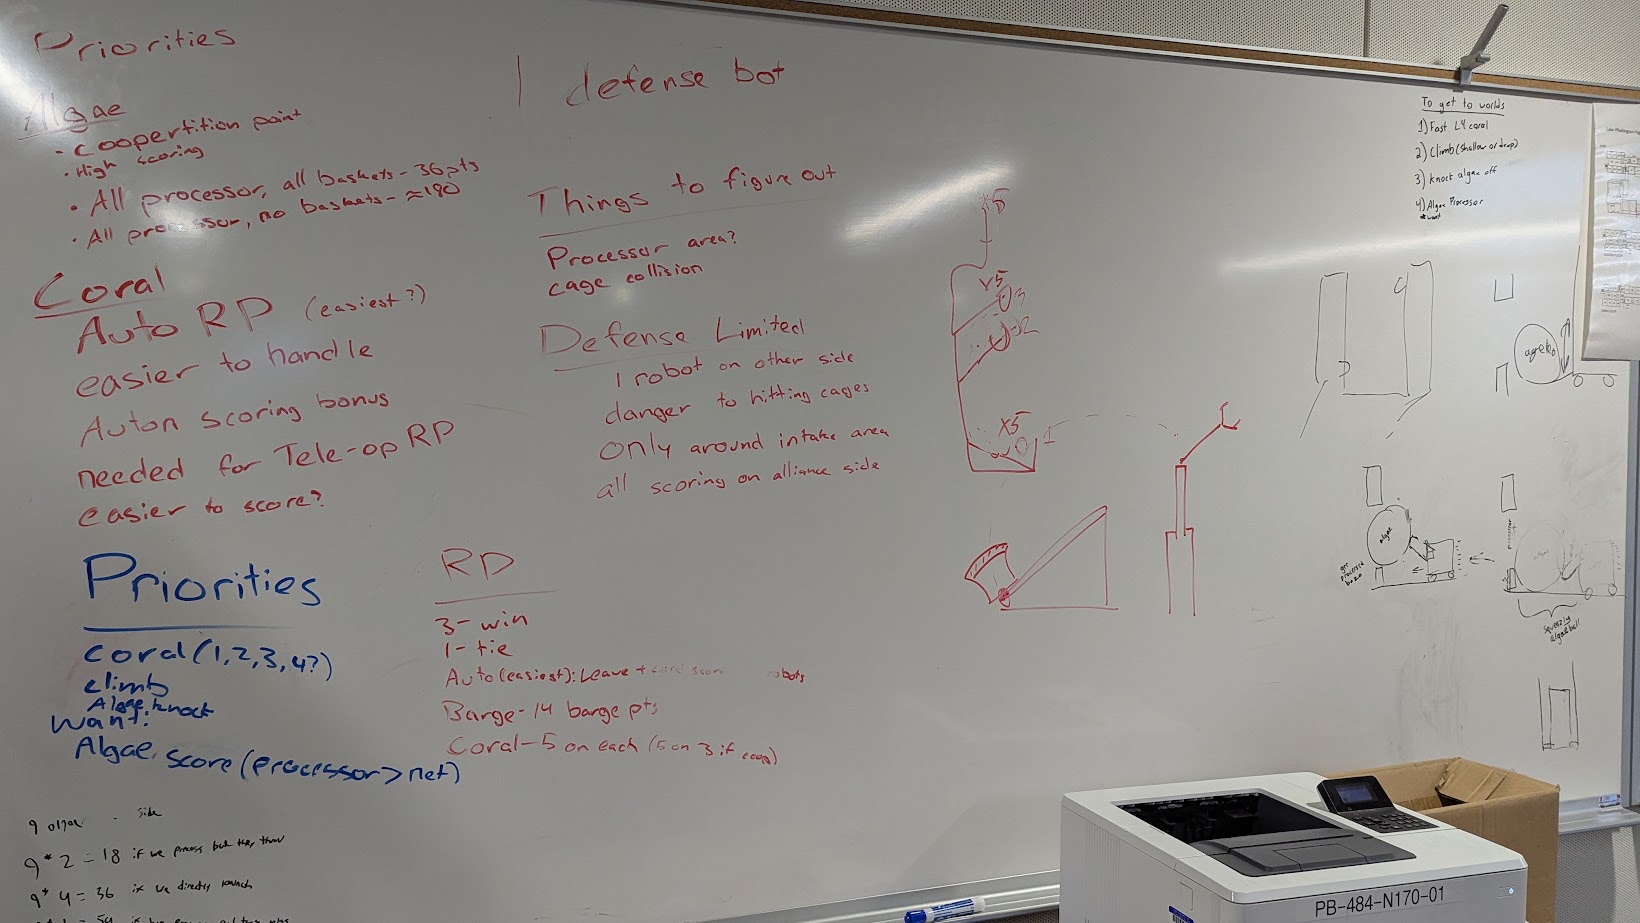 Priorities
Algae
- Coopertition point
• High scoring
• All processor, all baskets - 36pts
• All processor, no baskets - ≈190
Coral
Auto RP (easiest?)
easier to handle
Auton scoring bonus
needed for Tele-op RP
easier to score?
Priorities
coral (1,2,3,4?)
climb
Algae knock
want:
Algae score (processor > net)
9 algae - side
9 * 2 = 18 if we process but they throw
9 * 4 = 36 if we directly launch
= 54 if
1 defense bot
Things to figure out
Processor area?
cage collision
Defense Limited
1 robot on other side
danger to hitting cages
Only around intake area
all scoring on alliance side
RP
3 - win
1 - tie
Auto (easiest): Leave + robots
Barge - 14 barge pts
Coral - 5 on each (5 on 3 if coop)
X5
X5
3
2
X5
1
To get to worlds
1) Fast L4 coral
2) Climb (shallow or deep)
3) Knock algae off
4) Algae Processor
*want
algae
get
processed
bozo
squeezing
algae ball
PB-484-N170-01